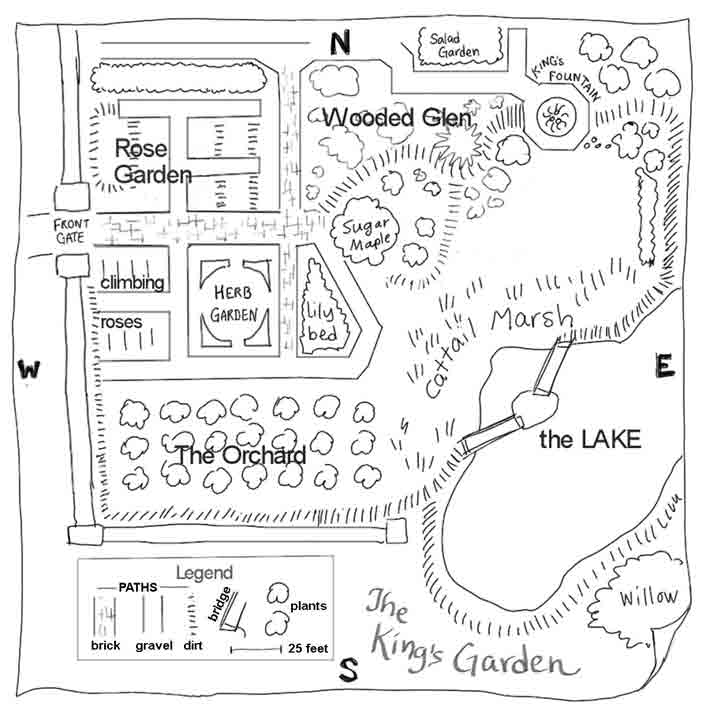 N
Salad
Garden
KING'S
FOUNTAIN
Wooded Glen
Rose
Garden
FRONT
GATE
Sugar
Maple
climbing
roses
HERB
GARDEN
lily
bed
Cattail Marsh
W
E
the LAKE
The Orchard
Legend
PATHS
brick
gravel
dirt
bridge
plants
25 feet
Willow
The
King's Garden
S